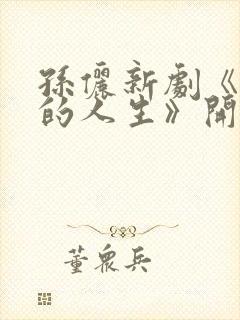 孫儷新劇《
的人生》開
董眾兵